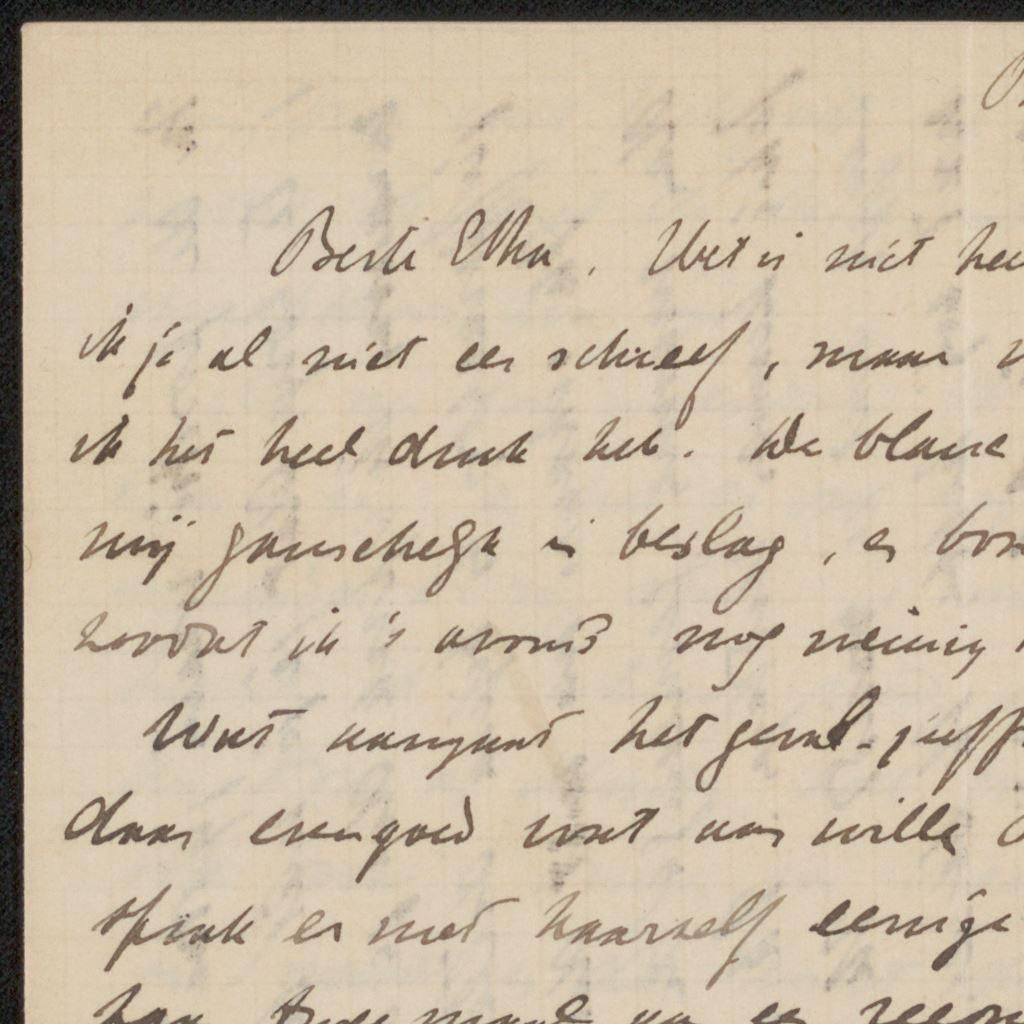 Beste Etha. Het is niet hee
ik je al niet eer schreef, maar
ik het heel druk heb. De blauw
mij ganschelijk in beslag, er
zoodat ik 's avonds nog weinig
Wat aangaat het geval-juff
daar evengoed wat aan wille
sprak er met haarzelf eenige